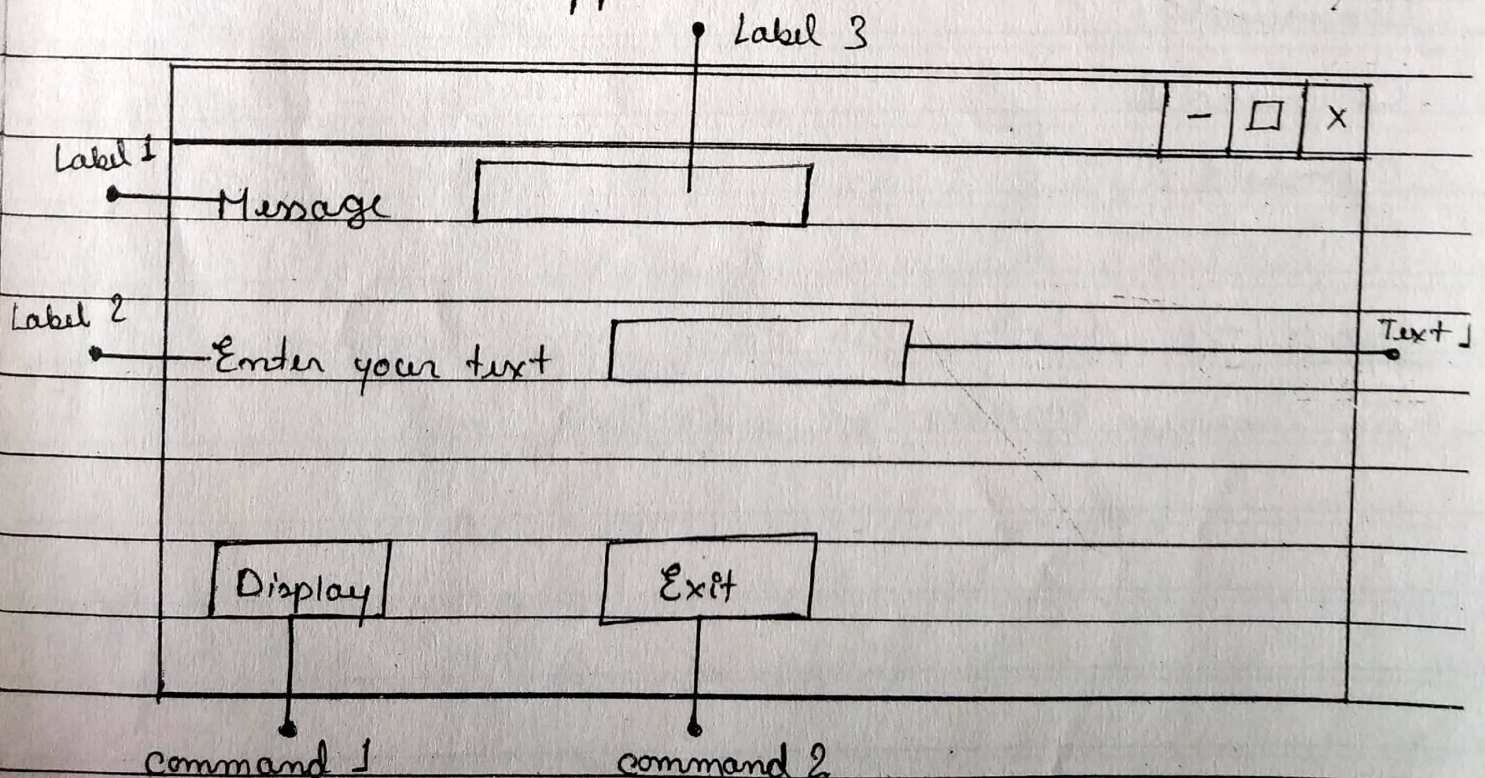 Label 3
- □ X
Label 1
Message
Label 2
Enter your text
Text 1
Display
Exit
command 1
command 2